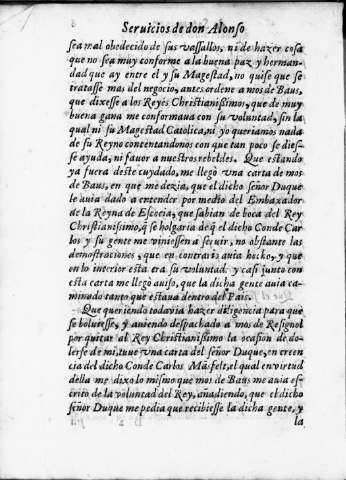 Seruicios de don Alonso
sea mal obedecido de sus vassallos, ni de hazer cosa
que no sea muy conforme a la buena paz y herman-
dad que ay entre el y su Magestad, no quise que se
tratasse mas del negocio, antes ordene a mos de Baus,
que dixesse a los Reyes Christianißimos, que de muy
buena gana me conformaua con su voluntad, sin la
qual ni su Magestad Catolica, ni yo queriamos nada
de su Reyno contentandonos con que tan poco se dies-
se ayuda, ni fauor a nuestros rebeldes. Que estando
ya fuera deste cuydado, me llegò vna carta de mos
de Baus, en que me dezia, que el dicho señor Duque
le auia dado a entender por medio del Embaxador
de la Reyna de Escocia, que sabian de boca del Rey
Christianißimo, q̃ se holgaria de q̃ el dicho Conde Car-
los y su gente me viniessen a seruir, no obstante las
demostraciones, que en contrario auia hecho, y que
en lo interior esta era su voluntad y casi junto con
esta carta me llegò auiso, que la dicha gente auia ca-
minado tanto que estaua dentro del Pais.
Que queriendo todavia hazer diligencia para que
se boluiesse, y auiendo despachado a mos de Resignol
por quitar al Rey Christianißimo la ocasion de do-
lerse de mi, tuue vna carta del señor Duque, en creen
cia del dicho Conde Carlos Mãsfelt, el qual en virtud
della me dixo lo mismo que mos de Baus me auia es-
crito de la voluntad del Rey, añadiendo, que el dicho
señor Duque me pedia que recibiesse la dicha gente, y
la